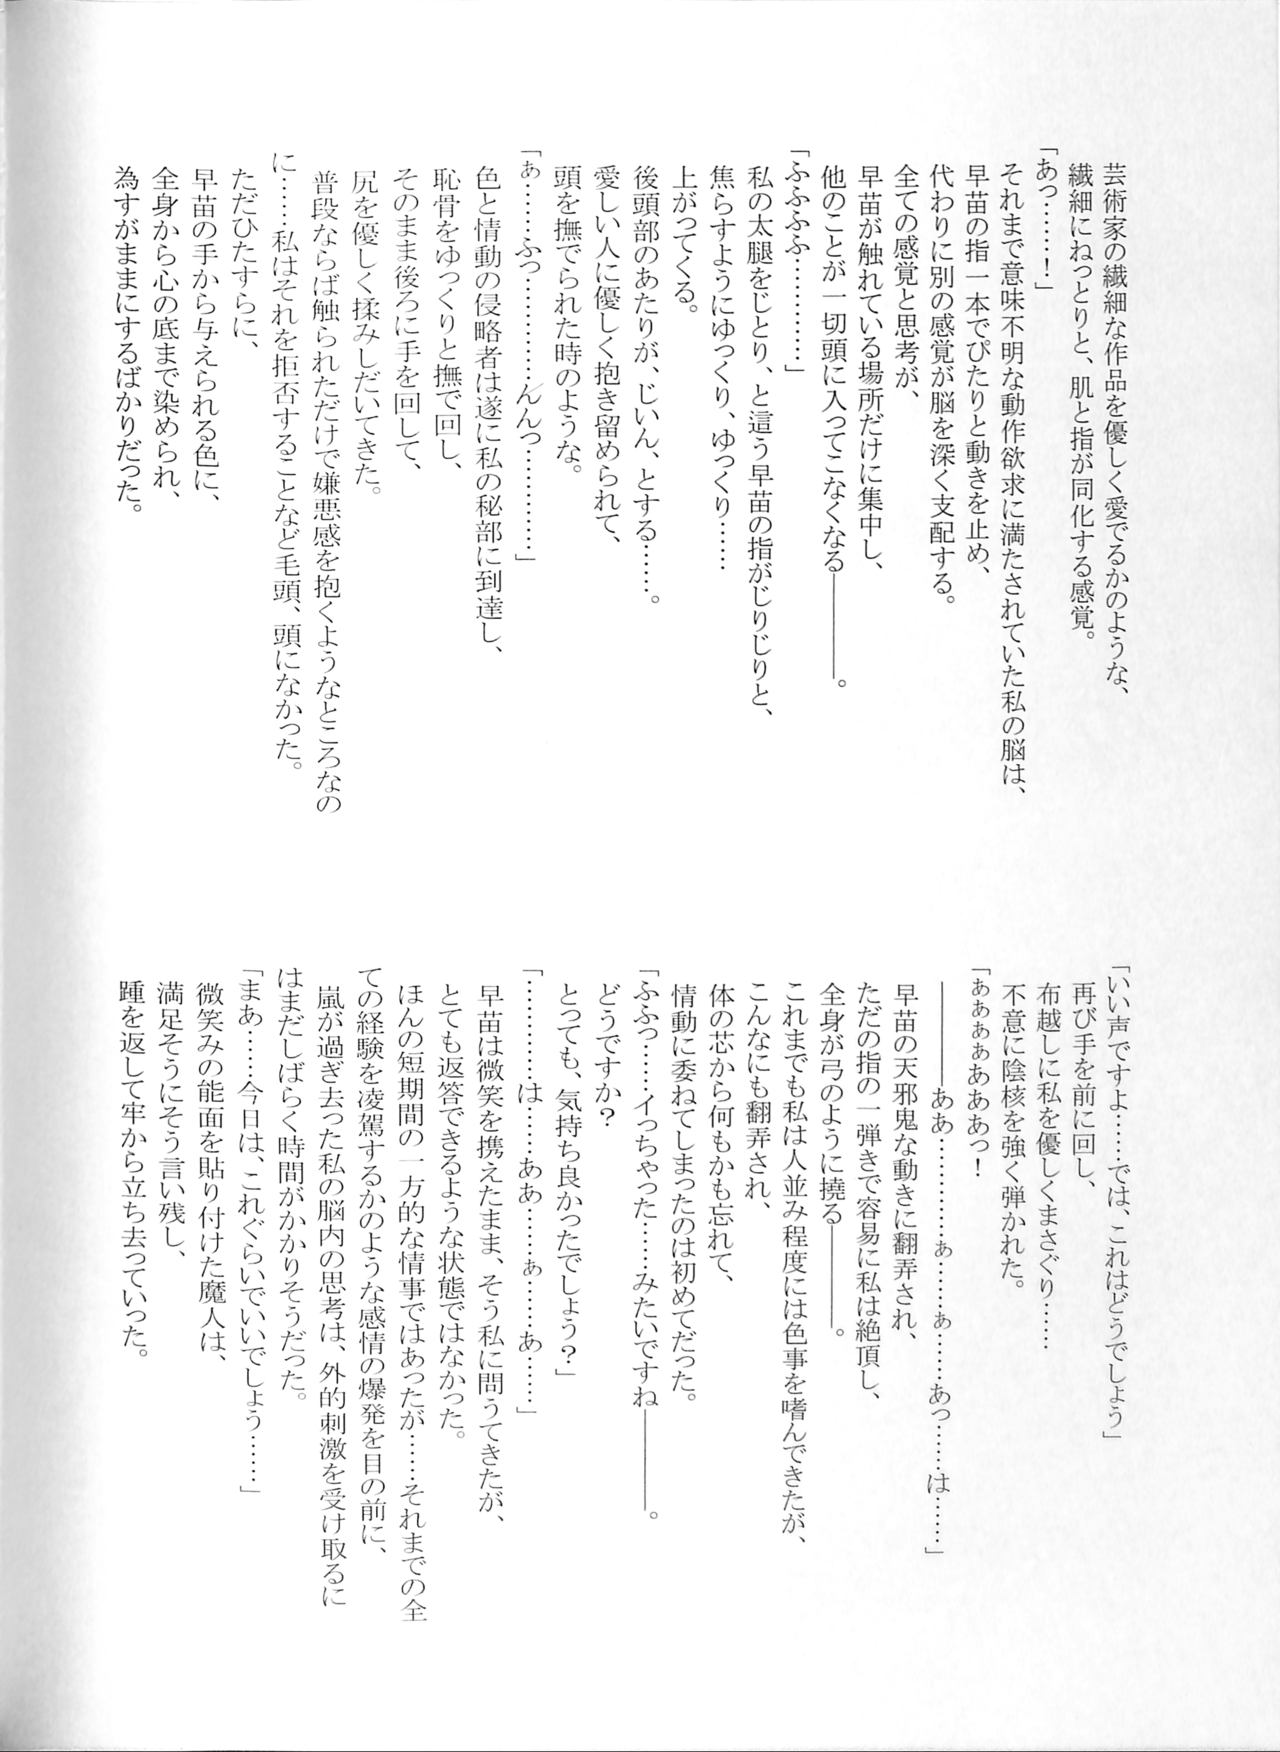 芸術家の繊細な作品を優しく愛でるかのような、
繊細にねっとりと、肌と指が同化する感覚。
「あっ……！」
それまで意味不明な動作欲求に満たされていた私の脳は、
早苗の指一本でぴたりと動きを止め、
代わりに別の感覚が脳を深く支配する。
全ての感覚と思考が、
早苗が触れている場所だけに集中し、
他のことが一切頭に入ってこなくなる――――。
「ふふふふ…………」
私の太腿をじとり、と這う早苗の指がじりじりと、
焦らすようにゆっくり、ゆっくり……
上がってくる。
後頭部のあたりが、じいん、とする……。
愛しい人に優しく抱き留められて、
頭を撫でられた時のような。
「ぁ………ふっ…………んんっ…………」
色と情動の侵略者は遂に私の秘部に到達し、
恥骨をゆっくりと撫で回し、
そのまま後ろに手を回して、
尻を優しく揉みしだいてきた。
普段ならば触られただけで嫌悪感を抱くようなところなの
に……私はそれを拒否することなど毛頭、頭になかった。
ただひたすらに、
早苗の手から与えられる色に、
全身から心の底まで染められ、
為すがままにするばかりだった。
「いい声ですよ……では、これはどうでしょう」
再び手を前に回し、
布越しに私を優しくまさぐり……
不意に陰核を強く弾かれた。
「ぁぁぁぁあああっ！
――――ああ…………ぁ……ぁ……あっ……は……」
早苗の天邪鬼な動きに翻弄され、
ただの指の一弾きで容易に私は絶頂し、
全身が弓のように撓る――――。
これまでも私は人並み程度には色事を嗜んできたが、
こんなにも翻弄され、
体の芯から何もかも忘れて、
情動に委ねてしまったのは初めてだった。
「ふふっ……イっちゃった……みたいですね――――。
どうですか？
とっても、気持ち良かったでしょう？」
「…………は……ああ……ぁ……あ……」
早苗は微笑を携えたまま、そう私に問うてきたが、
とても返答できるような状態ではなかった。
ほんの短期間の一方的な情事ではあったが……それまでの全
ての経験を凌駕するかのような感情の爆発を目の前に、
嵐が過ぎ去った私の脳内の思考は、外的刺激を受け取るに
はまだしばらく時間がかかりそうだった。
「まあ……今日は、これぐらいでいいでしょう……」
微笑みの能面を貼り付けた魔人は、
満足そうにそう言い残し、
踵を返して牢から立ち去っていった。